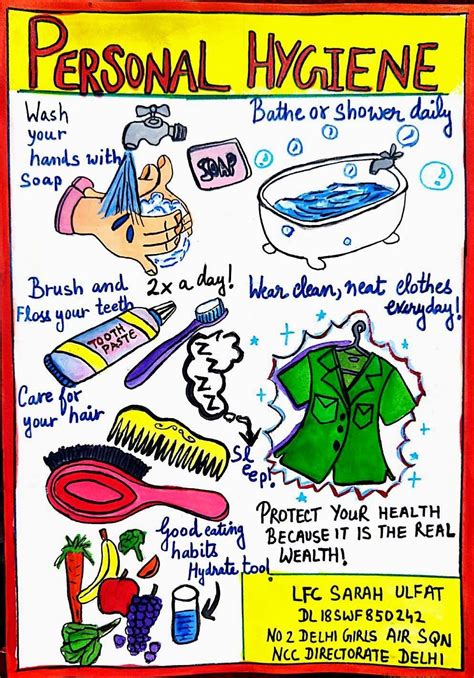 PERSONAL HYGIENE
Wash
your
hands with
soap
SOAP
Bathe or shower daily
Brush and
Floss your teeth
2x a day!
TOOTH
PASTE
Wear clean, neat clothes
everyday!
Care for
your hair
Z
Z
Z
Sl
eep!
Good eating
habits
Hydrate too!
PROTECT YOUR HEALTH
BECAUSE IT IS THE REAL
WEALTH!
LFC SARAH ULFAT
DL18SWF850242
NO 2 DELHI GIRLS AIR SQN
NCC DIRECTORATE DELHI